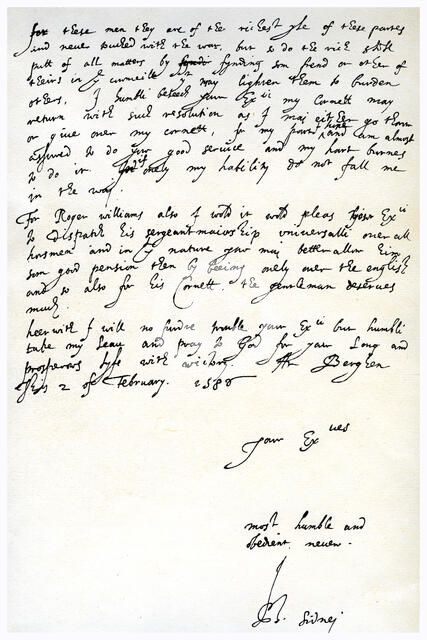 for these men they are of the richest yle of these partes
and never tuched with the war, but so do the rich still
putt of all matters by fynding som frend or other of
theirs in y counceill in way lighten them to burden
others, I humbli beseech your Ex my Cornett may
return with such resolution as I mai either go thorow
or give over my cornett, for my part I hope and am almost
assured to do your good service and my hart burnes
to do it. if onely my hability do not fall me
in the way.
For Roger williams also I wold it wold pleas your Ex
to dispatch his sergeant maiorship universalli over all
horsmen and in y nature your mai better allow him
som good pension then by beeing onely over the english
and so also for his Cornett. the gentleman deserves
much.
heerwith I will no furdre trouble your Ex but humbli
take my leau and pray to God for your Long and
prosperous lyfe with victory. At Berghen
this 2 of February. 1586
your Ex
most humble and
obedient neveu.
Ph. Sidnei